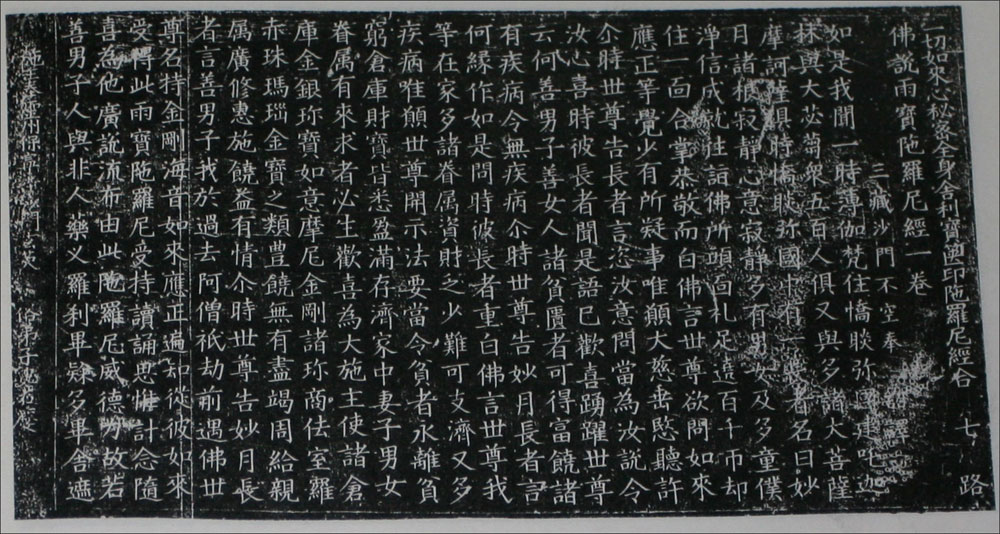 一切如來心祕密全身舍利寶篋印陁羅尼經合 七 路
佛說雨寶陁羅尼經一卷
三藏沙門不空奉 詔譯
如是我聞一時薄伽梵住憍睒弥國建吒迦
林與大苾蒭衆五百人俱又與多諸大菩薩
摩訶薩俱時憍睒弥國中有一長者名曰妙
月諸根寂靜心意寂静多有男女及多童僕
淨信成就往詣佛所頭面礼足遶百千帀却
住一面合掌恭敬而白佛言世尊欲問如來
應正等覺少有所疑事唯願大慈垂愍聽許
尒時世尊告長者言恣汝意問當為汝說令
汝心喜時彼長者聞是語已歡喜踊躍世尊
云何善男子善女人諸貧匱者可得富饒諸
有疾病令無疾病尒時世尊告妙月長者言
何緣作如是問時彼長者重白佛言世尊我
等在家多諸眷属資財乏少難可支濟又多
疾病唯願世尊開示法要當令貧者永離貧
窮倉庫財寶皆悉盈滿存濟家中妻子男女
眷属有來求者必生歡喜為大施主使諸倉
庫金銀珎寶如意摩尼金剛諸珎商佉室羅
赤珠瑪瑙金寶之類豊饒無有盡竭周給親
属廣修惠施饒益有情尒時世尊告妙月長
者言善男子我於過去阿僧祇劫前遇佛世
尊名持金剛海音如來應正遍知從彼如來
受得此雨寶陁羅尼受持讀誦思惟計念隨
喜為他廣說流布由此陁羅尼威德力故若
善男子人與非人藥叉羅刹畢隸多畢舍遮
施主奉